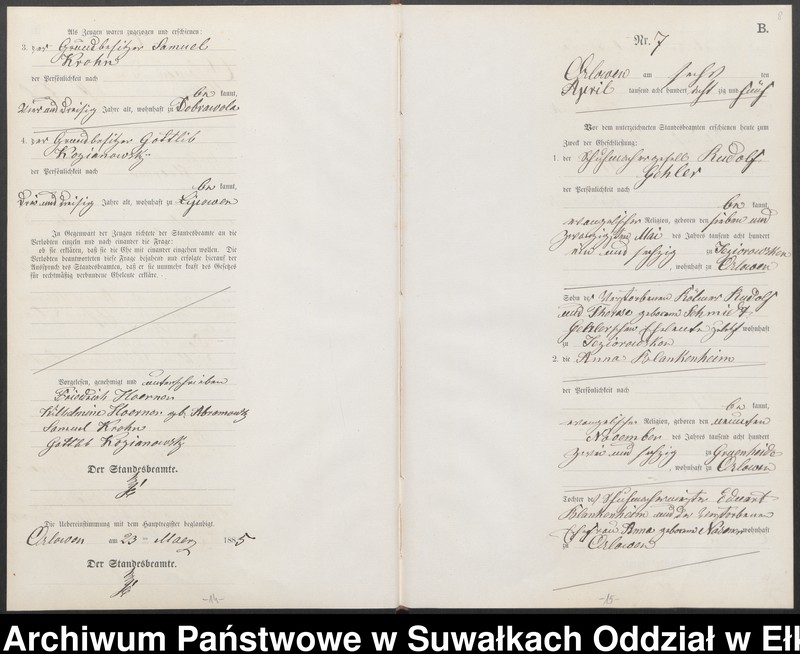 Als Zeugen waren zugezogen und erschienen:
3. der Grundbesitzer Samuel
Krohn
der Persönlichkeit nach
be kannt,
vier und dreißig Jahre alt, wohnhaft zu Dobrowola
4. der Grundbesitzer Gottlib
Kozianowsky
der Persönlichkeit nach
be kannt,
drei und dreißig Jahre alt, wohnhaft zu Lipowen
In Gegenwart der Zeugen richtete der Standesbeamte an die
Verlobten einzeln und nach einander die Frage:
ob sie erklären, daß sie die Ehe mit einander eingehen wollen. Die
Verlobten beantworteten diese Frage bejahend und erfolgte hierauf der
Ausspruch des Standesbeamten, daß er sie nunmehr kraft des Gesetzes
für rechtmäßig verbundene Eheleute erkläre.
Vorgelesen, genehmigt und unterschrieben
Friedrich Hoernor
Wilhelmine Hoernor geb. Abramowsky
Samuel Krohn
Gottlib Kozianowsky
Der Standesbeamte.
Die Uebereinstimmung mit dem Hauptregister beglaubigt.
Orlowen am 23 ten Maerz 1885
Der Standesbeamte.
-14-
B.
Nr. 7
Orlowen am sechs ten
April tausend acht hundert acht zig und fünf
Vor dem unterzeichneten Standesbeamten erschienen heute zum
Zweck der Eheschließung:
1. der Schuhmachergesell Rudolf
Gehler
der Persönlichkeit nach
be kannt,
evangelischer Religion, geboren den sieben und
zwanzigsten Mai des Jahres tausend acht hundert
ein und sechzig zu Jeziorowsken
, wohnhaft zu Orlowen
Sohn des verstorbenen Kölmers Rudolf
und Therese geborene Schmidt
Gehlerschen Eheleute wohnhaft
zu Jeziorowsken
2. die Anna Blankenheim
der Persönlichkeit nach
be kannt,
evangelischer Religion, geboren den neunten
November des Jahres tausend acht hundert
zwei und sechzig zu Gruenheide
, wohnhaft zu Orlowen
Tochter des Schuhmachermeister Eduart
Blankenheim und der verstorbenen
Ehefrau Anna geborene wohnhaft
zu Orlowen
-15-
Archiwum Państwowe w Suwałkach Oddział w Ełk